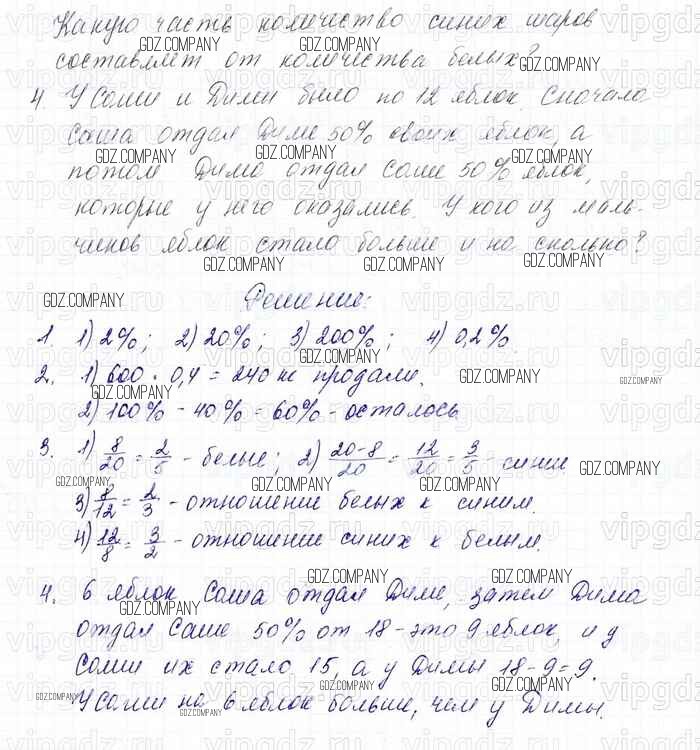 Какую часть количество синих шаров
составляет от количества белых?
4. У Саши и Димы было по 12 яблок. Сначала
Саша отдал Диме 50% своих яблок, а
потом Дима отдал Саше 50% яблок,
которые у него оказались. У кого из маль-
чиков яблок стало больше и на сколько?
Решение:
1. 1) 2%; 2) 20%; 3) 200%; 4) 0,2%.
2. 1) 600 · 0,4 = 240 кг продали.
2) 100% - 40% = 60% - осталось
3. 1) 8/20 = 2/5 - белые; 2) (20-8)/20 = 12/20 = 3/5 - синие.
3) 8/12 = 2/3 - отношение белых к синим.
4) 12/8 = 3/2 - отношение синих к белым.
4. 6 яблок Саша отдал Диме, затем Дима
отдал Саше 50% от 18 - это 9 яблок, и у
Саши их стало 15, а у Димы 18 - 9 = 9.
У Саши на 6 яблок больше, чем у Димы.
GDZ.COMPANY
vipgdz.ru